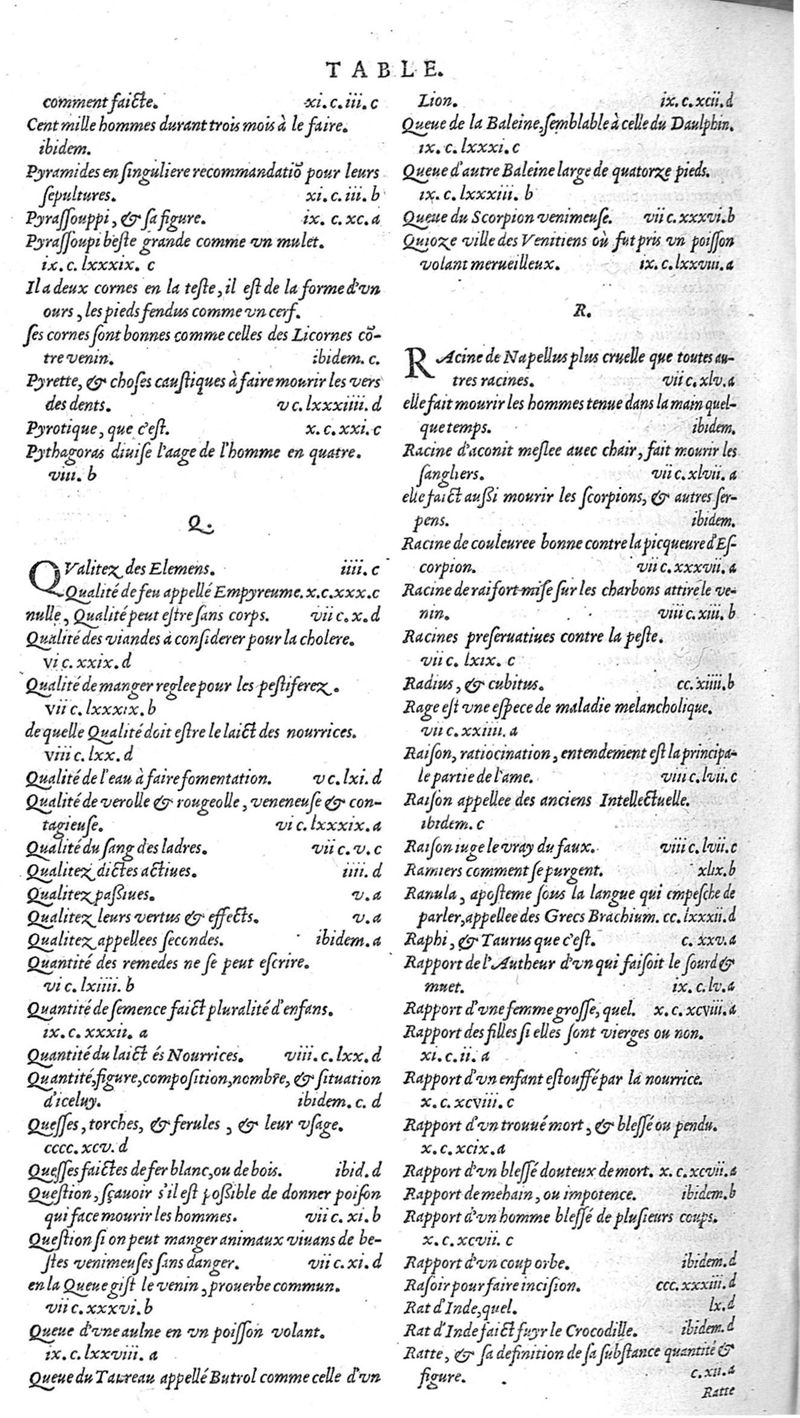 TABLE.
comment faicte. xi. c. iii. c
Cent mille hommes durant trois mois à le faire.
ibidem.
Pyramides en singuliere recommandatiõ pour leurs
sepultures. xi. c. iii. b
Pyrassouppi, & sa figure. ix. c. xc. a
Pyrassoupi beste grande comme vn mulet.
ix. c. lxxxix. c
Il a deux cornes en la teste, il est de la forme d'vn
ours, les pieds fendus comme vn cerf.
ses cornes sont bonnes comme celles des Licornes cõ-
tre venin. ibidem. c.
Pyrette, & choses caustiques à faire mourir les vers
des dents. v c. lxxxiiii. d
Pyrotique, que c'est. x. c. xxi. c
Pythagoras diuise l'aage de l'homme en quatre.
viii. b
Q.
QValitez des Elemens. iiii. c
Qualité de feu appellé Empyreume. x. c. xxx. c
nulle, Qualité peut estre sans corps. vii c. x. d
Qualité des viandes à considerer pour la cholere.
vi c. xxix. d
Qualité de manger reglee pour les pestiferez.
vii c. lxxxix. b
de quelle Qualité doit estre le laict des nourrices.
viii c. lxx. d
Qualité de l'eau à faire fomentation. v c. lxi. d
Qualité de verolle & rougeolle, veneneuse & con-
tagieuse. vi c. lxxxix. a
Qualité du sang des ladres. vii c. v. c
Qualitez dictes actiues. iiii. d
Qualitez passiues. v. a
Qualitez leurs vertus & effects. v. a
Qualitez appellees secondes. ibidem. a
Quantité des remedes ne se peut escrire.
vi c. lxiiii. b
Quantité de semence faict pluralité d'enfans.
ix. c. xxxii. a
Quantité du laict és Nourrices. viii. c. lxx. d
Quantité, figure, composition, nombre, & situation
d'iceluy. ibidem. c. d
Quesses, torches, & ferules, & leur vsage.
cccc. xcv. d
Quesses faictes de fer blanc, ou de bois. ibid. d
Question, sçauoir s'il est possible de donner poison
qui face mourir les hommes. vii c. xi. b
Question si on peut manger animaux viuans de be-
stes venimeuses sans danger. vii c. xi. d
en la Queue gist le venin, prouerbe commun.
vii c. xxxvi. b
Queue d'vne aulne en vn poisson volant.
ix. c. lxxviii. a
Queue du Taureau appellé Butrol comme celle d'vn
Lion. ix. c. xcii. d
Queue de la Baleine, semblable à celle du Daulphin.
ix. c. lxxxi. c
Queue d'autre Baleine large de quatorze pieds.
ix. c. lxxxiii. b
Queue du Scorpion venimeuse. vii c. xxxvi. b
Quioze ville des Venitiens où fut pris vn poisson
volant merueilleux. ix. c. lxxviii. a
R.
RAcine de Napellus plus cruelle que toutes au-
tres racines. vii c. xlv. a
elle fait mourir les hommes tenue dans la main quel-
que temps. ibidem.
Racine d'aconit meslee auec chair, fait mourir les
sangliers. vii c. xlvii. a
elle faict aussi mourir les scorpions, & autres ser-
pens. ibidem.
Racine de couleuree bonne contre la picqueure d'Es-
corpion. vii c. xxxvii. a
Racine de raifort mise sur les charbons attire le ve-
nin. viii c. xiii. b
Racines preseruatiues contre la peste.
vii c. lxix. c
Radius, & cubitus. cc. xiiii. b
Rage est vne espece de maladie melancholique.
vii c. xxiiii. a
Raison, ratiocination, entendement est la principa-
le partie de l'ame. viii c. lvii. c
Raison appellee des anciens Intellectuelle.
ibidem. c
Raison iuge le vray du faux. viii c. lvii. c
Ramiers comment se purgent. xlix. b
Ranula, aposteme sous la langue qui empesche de
parler, appellee des Grecs Brachium. cc. lxxxii. d
Raphi, & Taurus que c'est. c. xxv. a
Rapport de l'Autheur d'vn qui faisoit le sourd &
muet. ix. c. lv. a
Rapport d'vne femme grosse, quel. x. c. xcviii. a
Rapport des filles si elles sont vierges ou non.
xi. c. ii. a
Rapport d'vn enfant estouffé par la nourrice.
x. c. xcviii. c
Rapport d'vn trouué mort, & blessé ou pendu.
x. c. xcix. a
Rapport d'vn blessé douteux de mort. x. c. xcvii. a
Rapport de mehain, ou impotence. ibidem. b
Rapport d'vn homme blessé de plusieurs coups.
x. c. xcvii. c
Rapport d'vn coup orbe. ibidem. d
Rasoir pour faire incision. ccc. xxxiii. d
Rat d'Inde, quel. lx. d
Rat d'Inde faict fuyr le Crocodille. ibidem. d
Ratte, & sa definition de sa substance quantité &
figure. c. xii. a
Ratte